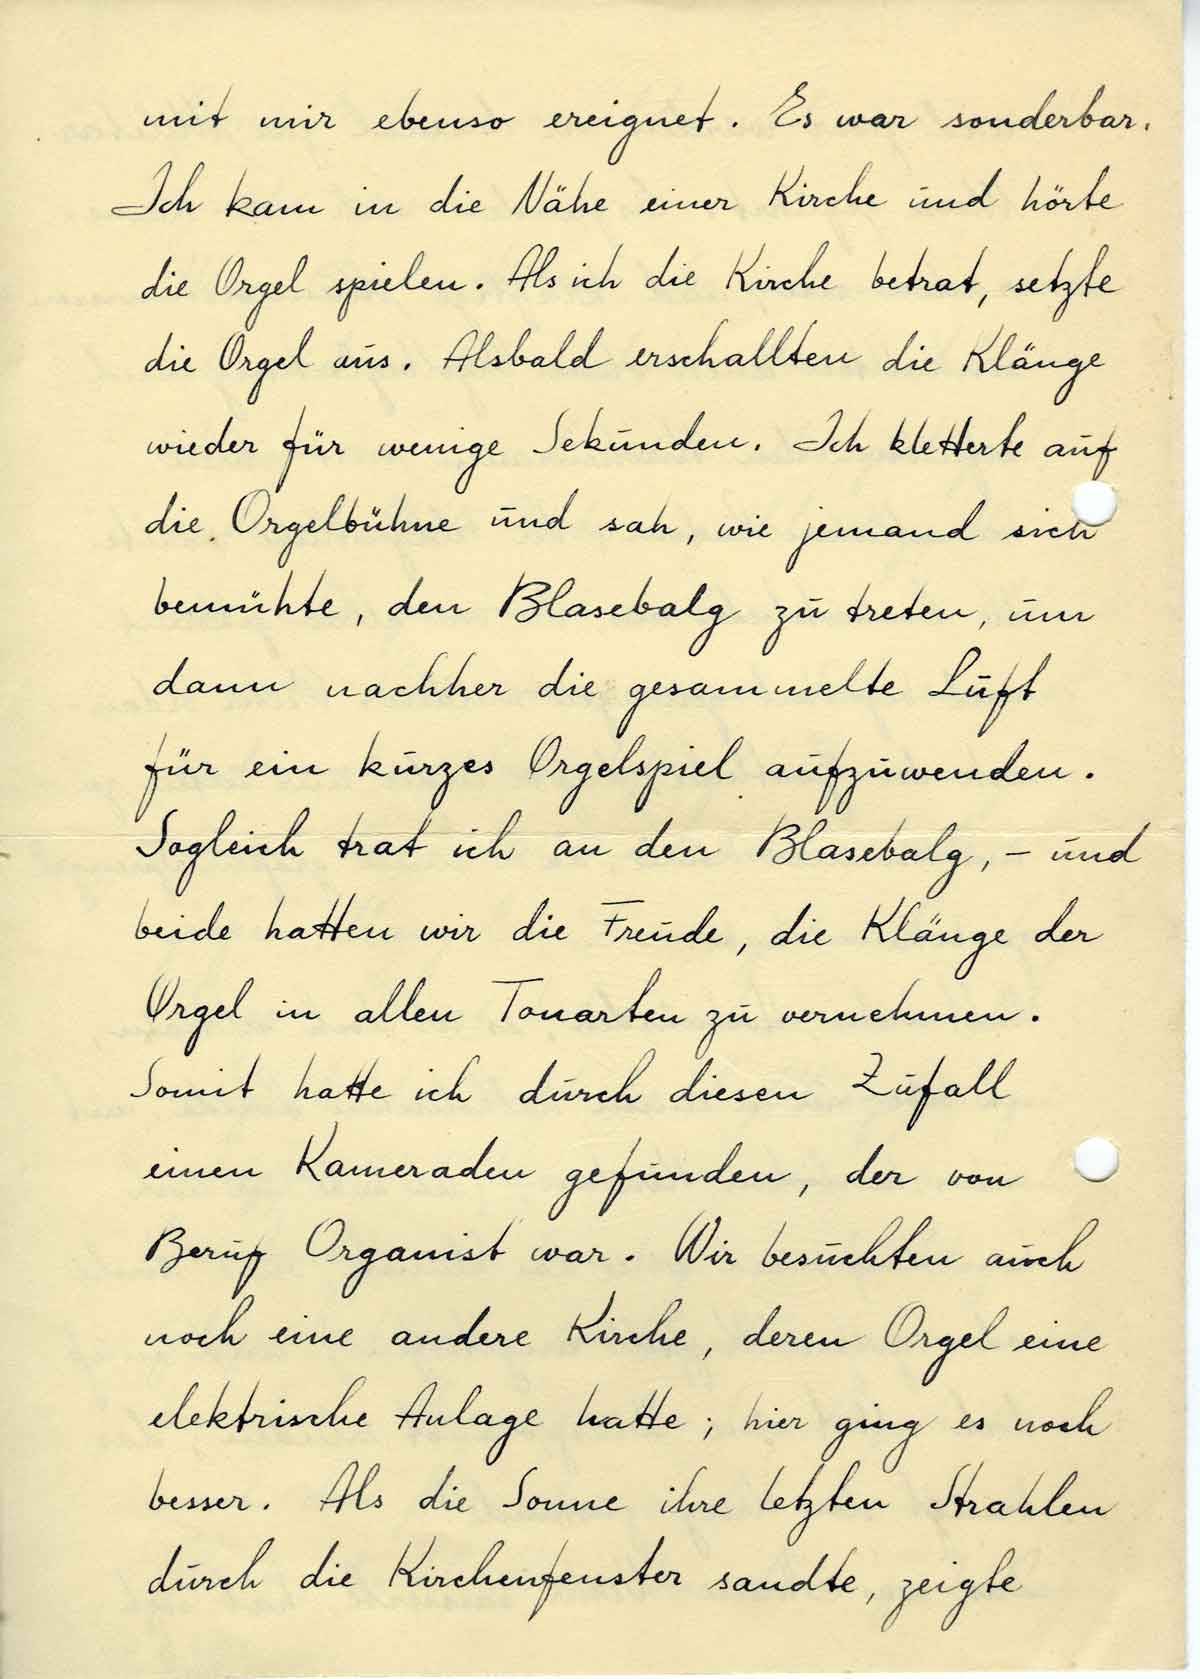 mit mir ebenso ereignet. Es war sonderbar.
Ich kam in die Nähe einer Kirche und hörte
die Orgel spielen. Als ich die Kirche betrat, setzte
die Orgel aus. Alsbald erschallten die Klänge
wieder für wenige Sekunden. Ich kletterte auf
die Orgelbühne und sah, wie jemand sich
bemühte, den Blasebalg zu treten, um
dann nachher die gesammelte Luft
für ein kurzes Orgelspiel aufzuwenden.
Sogleich trat ich an den Blasebalg, – und
beide hatten wir die Freude, die Klänge der
Orgel in allen Tonarten zu vernehmen.
Somit hatte ich durch diesen Zufall
einen Kameraden gefunden, der von
Beruf Organist war. Wir besuchten auch
noch eine andere Kirche, deren Orgel eine
elektrische Anlage hatte; hier ging es noch
besser. Als die Sonne ihre letzten Strahlen
durch die Kirchenfenster sandte, zeigte